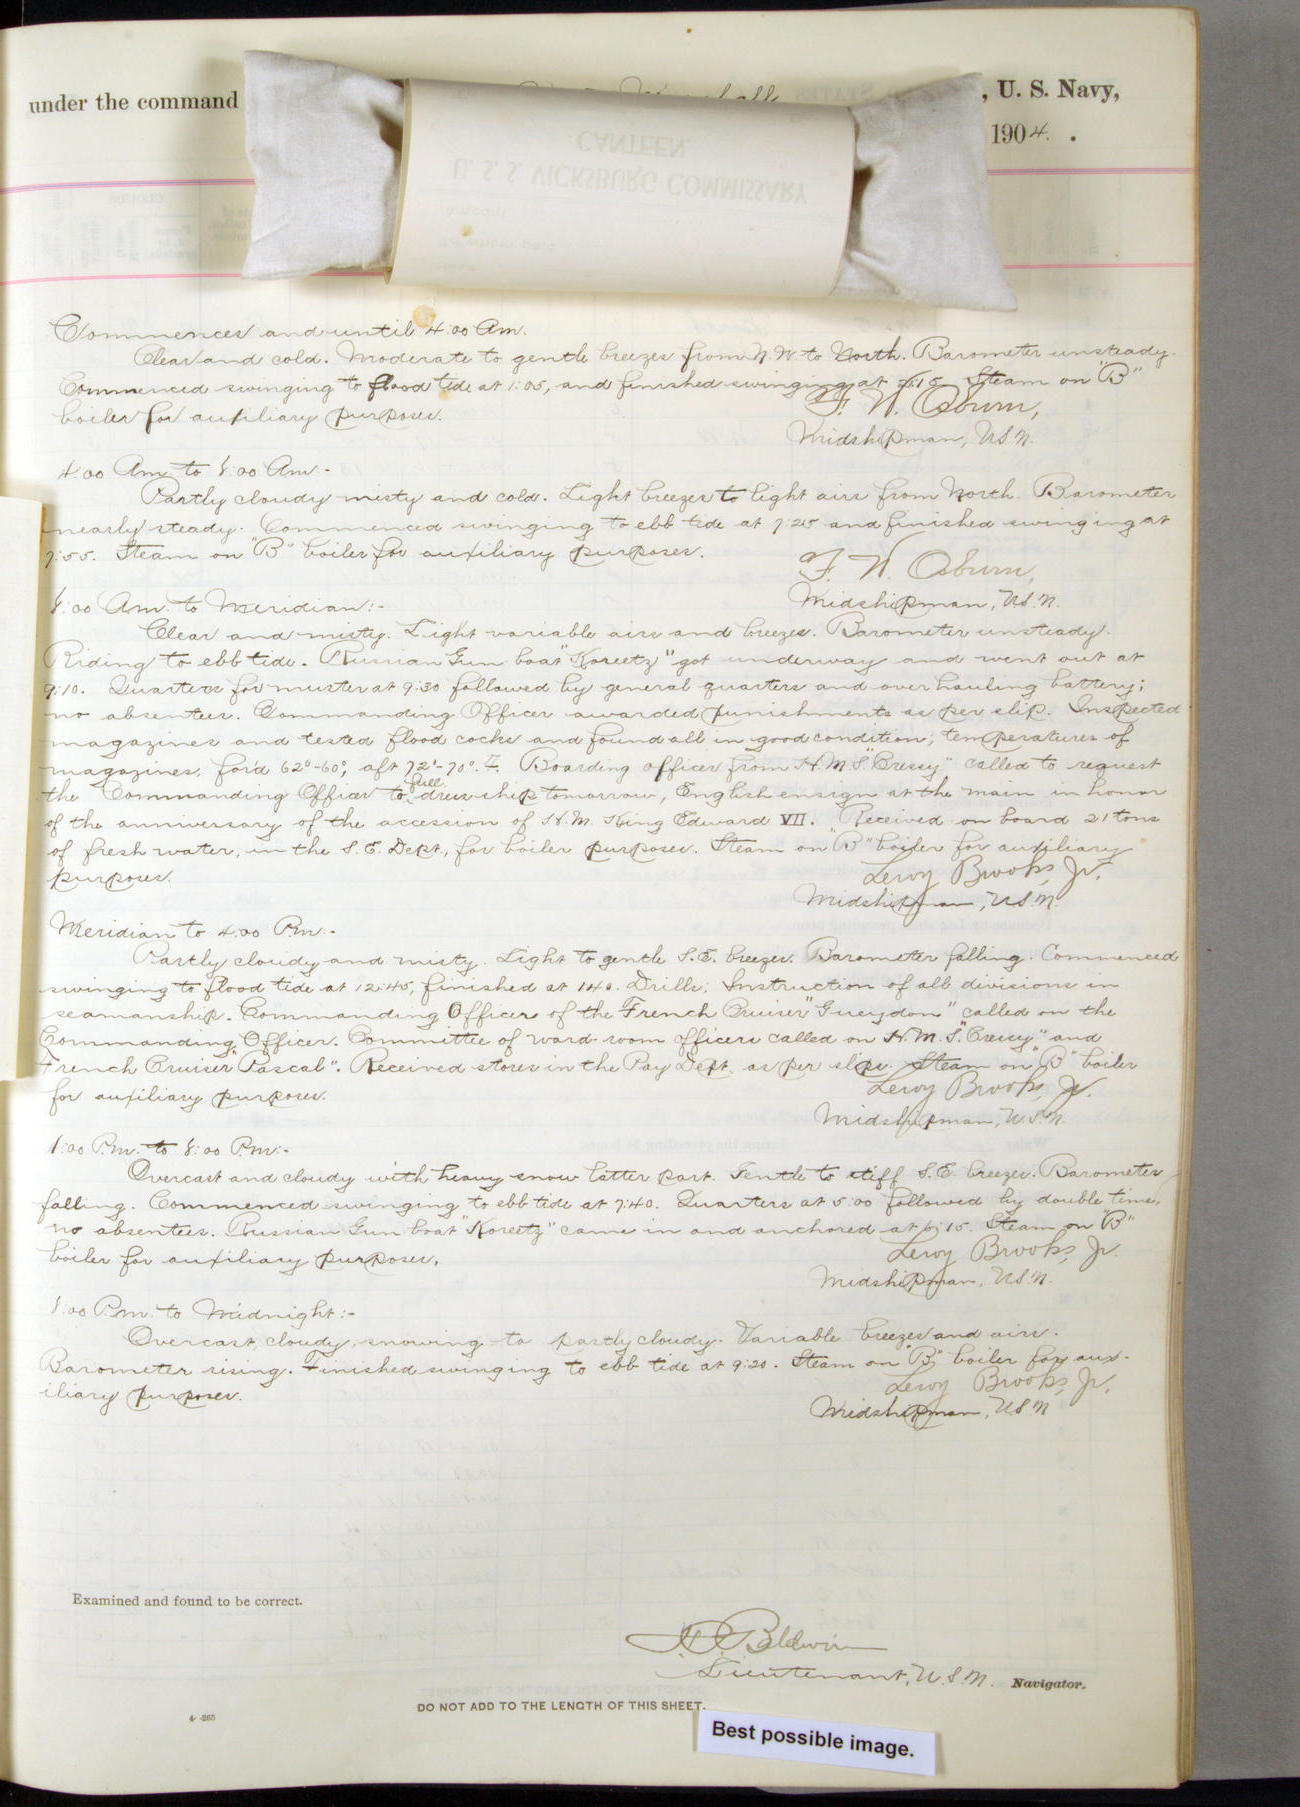 under the command
, U. S. Navy,
1904.
CANTEEN
U. S. S. VICKSBURG COMMISSARY
Commences and until 4:00 Am.
Clear and cold. Moderate to gentle breezes from N.W to North. Barometer unsteady.
Commenced swinging to flood tide at 1:05, and finished swinging at Steam on "B"
boiler for auxiliary purposes.
F. W. Osburn,
Midshipman, U.S.N.
4:00 Am to 8:00 Am:-
Partly cloudy misty and cold. Light breezes to light airs from North. Barometer
nearly steady. Commenced swinging to ebb tide at 7:25 and finished swinging at
7:55. Steam on "B" boiler for auxiliary purposes.
F. W. Osburn,
Midshipman, U.S.N.
8:00 Am. to Meridian:-
Clear and misty. Light variable airs and breezes. Barometer unsteady.
Riding to ebb tide. Russian Gun boat "Koreetz" got underway and went out at
9:10. Quarters for muster at 9:30 followed by general quarters and overhauling battery;
no absentees. Commanding Officer awarded punishments as per slip. Inspected
magazines and tested flood cocks and found all in good condition; temperatures of
magazines, for'd 62°-60°, aft 72°-70°. F. Boarding officer from H.M.S. "Cressy" called to request
the Commanding Officer to full dress ship tomorrow, English ensign at the main in honor
of the anniversary of the accession of H.M. King Edward VII. Received on board 21 tons
of fresh water, in the S.E. Dept., for boiler purposes. Steam on "B" boiler for auxiliary
purposes.
Leroy Brooks, Jr.
Midshipman, U.S.N.
Meridian to 4:00 Pm:-
Partly cloudy and misty. Light to gentle S.E. breezes. Barometer falling. Commenced
swinging to flood tide at 12:45, finished at 1:40. Drills: Instruction of all divisions in
seamanship. Commanding Officer of the French Cruiser "Gueydon" called on the
Commanding Officer. Committee of ward-room officers called on H.M.S. "Cressy" and
French Cruiser "Pascal". Received stores in the Pay Dept. as per slips. Steam on "B" boiler
for auxiliary purposes.
Leroy Brooks, Jr.
Midshipman, U.S.N.
4:00 P.m. to 8:00 P.m:-
Overcast and cloudy with heavy snow latter part. Gentle to stiff S.E. breezes. Barometer
falling. Commenced swinging to ebb tide at 7:40. Quarters at 5:00 followed by double time,
no absentees. Russian Gun boat "Koreetz" came in and anchored at 6:15. Steam on "B"
boiler for auxiliary purposes.
Leroy Brooks, Jr.
Midshipman, U.S.N.
8:00 P.m. to Midnight:-
Overcast, cloudy, snowing to partly cloudy. Variable breezes and airs.
Barometer rising. Finished swinging to ebb tide at 9:20. Steam on "B" boiler for aux-
iliary purposes.
Leroy Brooks, Jr.
Midshipman, U.S.N
Examined and found to be correct.
Baldwin
Lieutenant, U.S.N. Navigator.
DO NOT ADD TO THE LENGTH OF THIS SHEET.
4-265
Best possible image.